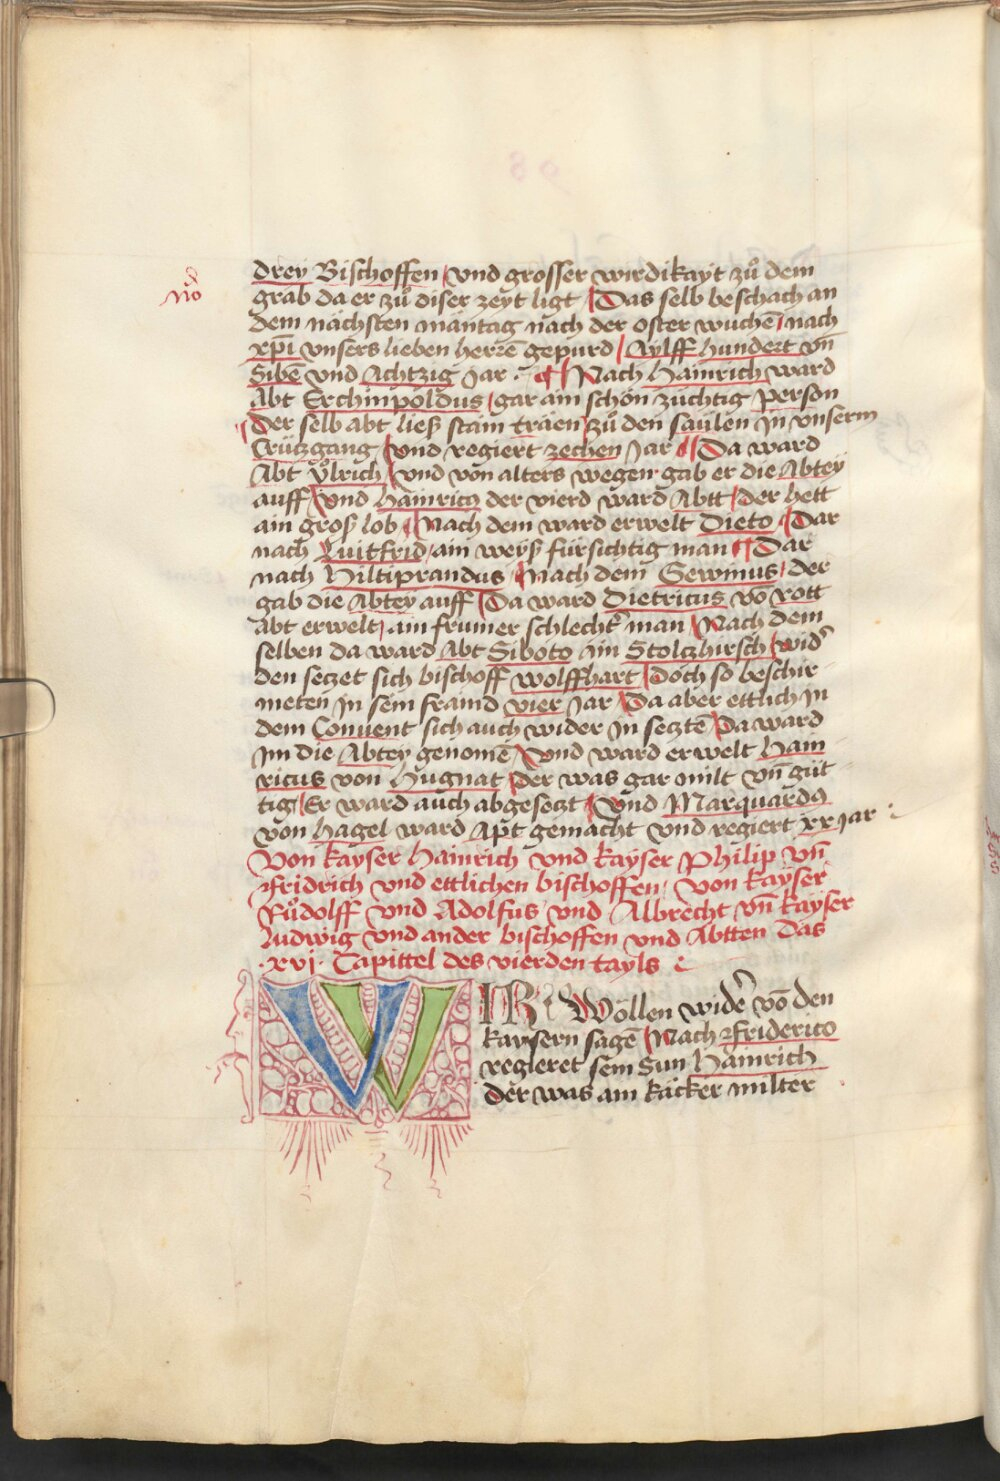 No
drey Bischoffen / vnd grosser wirdikayt zů dem
grab da er zů diser zeyt ligt / Das selb beschach an
dem nächsten mäntag nach der oster wuchē / nach
xp̄i vnsers lieben herrē gepurd / Aylff hundert vn̄
Sibē vnd Achtzig Jar · ¶ / Nach Hainrich ward
Abt Erchinpoldus / gar ain schön züchtig person
/ Der selb abt ließ stain träen / zů den säulen in vnserm
Crützgang / vnd regiert zechen Jar ¶ / Da ward
Abt Ůlrich / vnd von alters wegen gab er die Abtey
auff / vnd Hainricꝰ der vierd ward Abtt / der hett
ain groß lob / Nach dem ward erwelt Dieto / Dar
nach Luitfrid / ain weyß fürsichtig man ¶ Dar
nach Hiltiprandus / Nach dem Sewinus / der
gab die Abtey auff / Da ward Dietricus vō rott
abt erwelt / ain frumer schlecht̄ man / Nach dem
selben da ward Abt Siboto ain Stolczhirsch / wid̄
den seczet sich bischoff wolffhart / Doch so beschir
meten in sein fraind vier Jar / Da aber ettlich in
dem Conuent sich auch wider in seztē / Da ward
im die Abtey genomē / vnd ward erwelt Hain
ricus von Hugnat / der was gar milt vn̄ güt
tig / Er ward auch abgeseczt / vnd Marquardꝰ
von Hagel ward Apt gemacht vnd regiert xx Jar :
Von kayser Hainrich vnd kayser Philip vn̄
fridrich vnd ettlichen bischoffen / von kayser
Růdolff vnd Adolfus vnd Albrecht vn̄ kayser
Ludwig vnd ander bischoffen vnd Abtten das
·xvj· Capittel des vierden tayls
WIR Wöllen widē vō den
kaysern sagē / Nach friderico
regieret sein Sun Hainrich
der was ain käcker milter